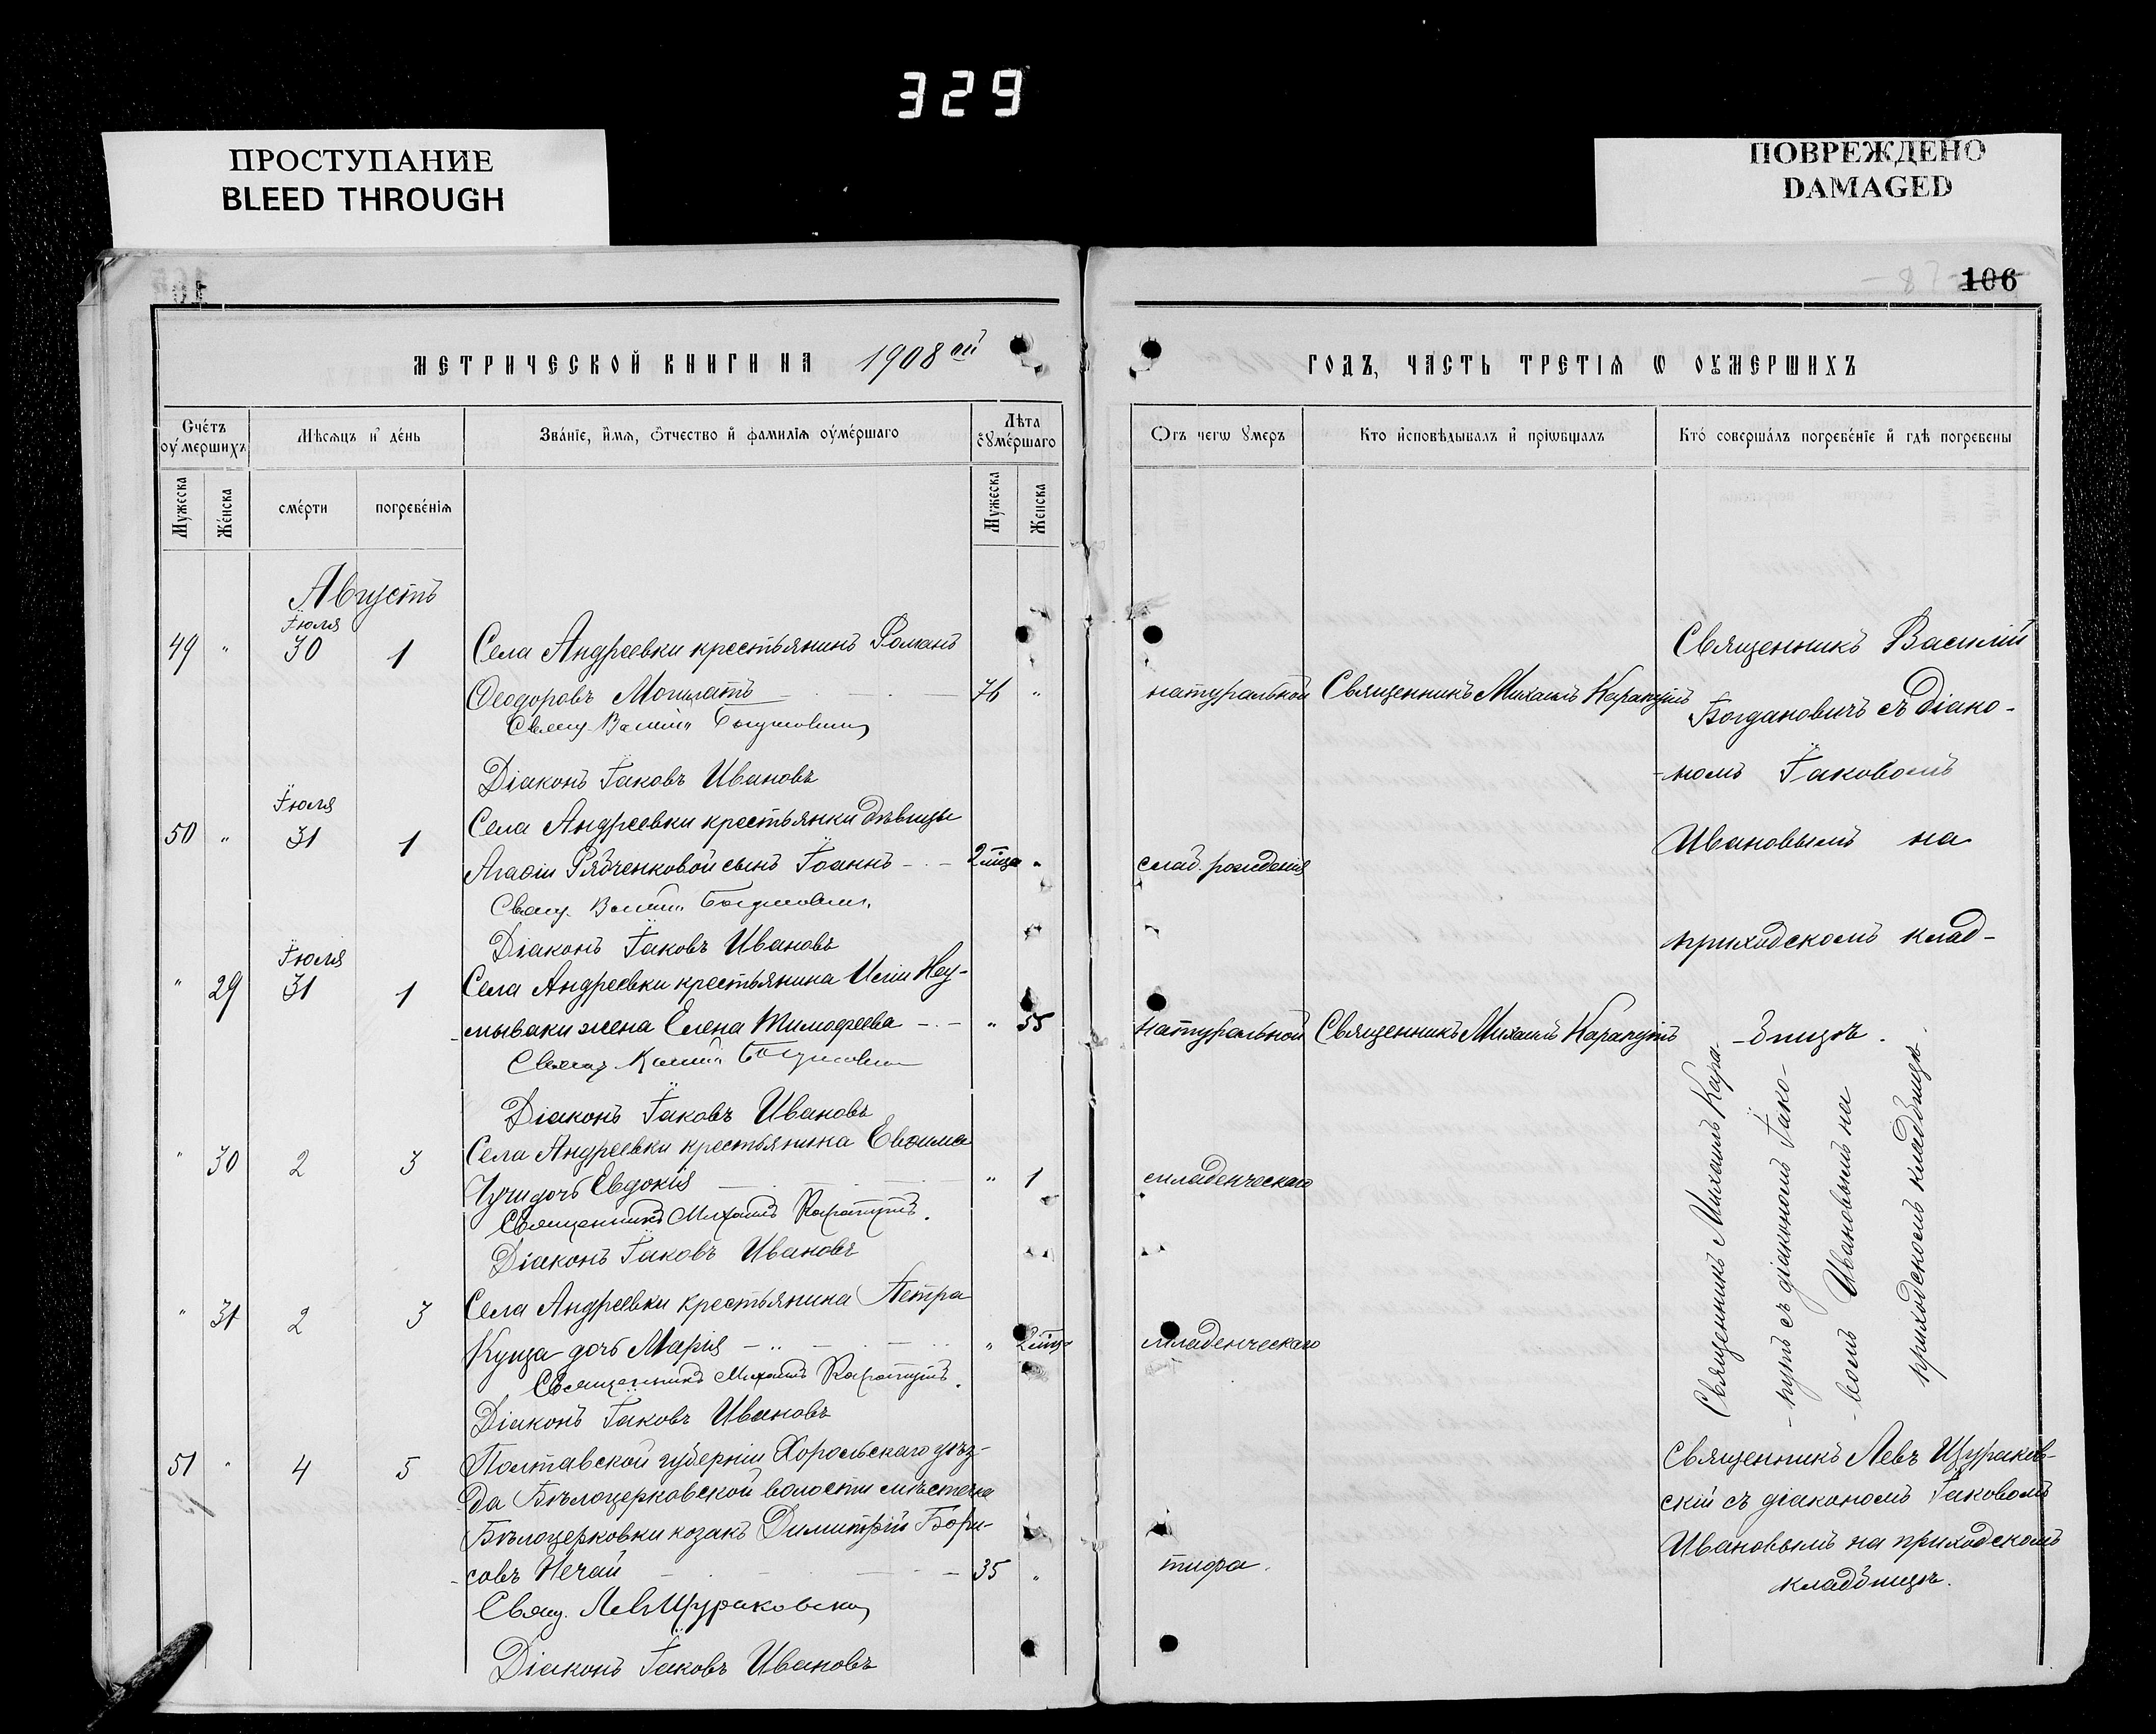 329
ПРОСТУПАНИЕ
BLEED THROUGH
ПОВРЕЖДЕНО
DAMAGED
106
МЕТРИЧЕСКОЙ КНИГИ НА 1908 ой
ГОДЪ, ЧАСТЬ ТРЕТІЯ Ѡ ОУМЕРШИХЪ
Счетъ оумершихъ
Мѣсяцъ и день
Званіе, имя, отчество и фамилія оумершаго
Лѣта оумершаго
Отъ чегѡ умеръ
Кто исповѣдывалъ и пріѡбщалъ
Кто совершалъ погребеніе и гдѣ погребены
Мужеска
Женска
смерти
погребенія
Мужеска
Женска
Августъ
Іюля
49 " 30 1 Села Андреевки крестьянинъ Романъ
Ѳеодоровъ Могилатъ 76 " натуральной Священникъ Михаилъ Карапутъ
Свящ. Василій Богдановичъ
Діаконъ Іаковъ Ивановъ
Іюля
50 " 31 1 Села Андреевки крестьянки дѣвицы
Агаѳіи Рябченковой сынъ Іоаннъ 2 мца " слаб. рожденія
Свящ. Василій Богдановичъ
Діаконъ Іаковъ Ивановъ
Іюля
" 29 31 1 Села Андреевки крестьянина Иліи Неу-
мываки жена Елена Тимофеева " 55 натуральной Священникъ Михаилъ Карапутъ
Свящ. Василій Богдановичъ
Діаконъ Іаковъ Ивановъ
Священникъ Василій
Богдановичъ съ діако-
-номъ Іаковомъ
Ивановымъ на
приходскомъ клад-
-бищѣ.
" 30 2 3 Села Андреевки крестьянина Евѳима
дочь Евдокія " 1 младенческаго
Священникъ Михаилъ Карапутъ.
Діаконъ Іаковъ Ивановъ
" 31 2 3 Села Андреевки крестьянина Петра
Куцда дочь Марія " 2 мца младенческаго
Священникъ Михаилъ Карапутъ.
Діаконъ Іаковъ Ивановъ
Священникъ Михаилъ Кара-
-путъ съ діакономъ Іако-
-вомъ Ивановымъ на
приходскомъ кладбищѣ.
51 " 4 5 Полтавской губерніи Хорольскаго уѣз-
да Бѣлоцерковской волости мѣстечка
Бѣлоцерковки козакъ Димитрій Бори-
-совъ Нечай 35 " тифа.
Свящ. Левъ Щураковскій
Діаконъ Іаковъ Ивановъ
Священникъ Левъ Щураков-
скій съ діакономъ Іаковомъ
Ивановымъ на приходскомъ
кладбищѣ.